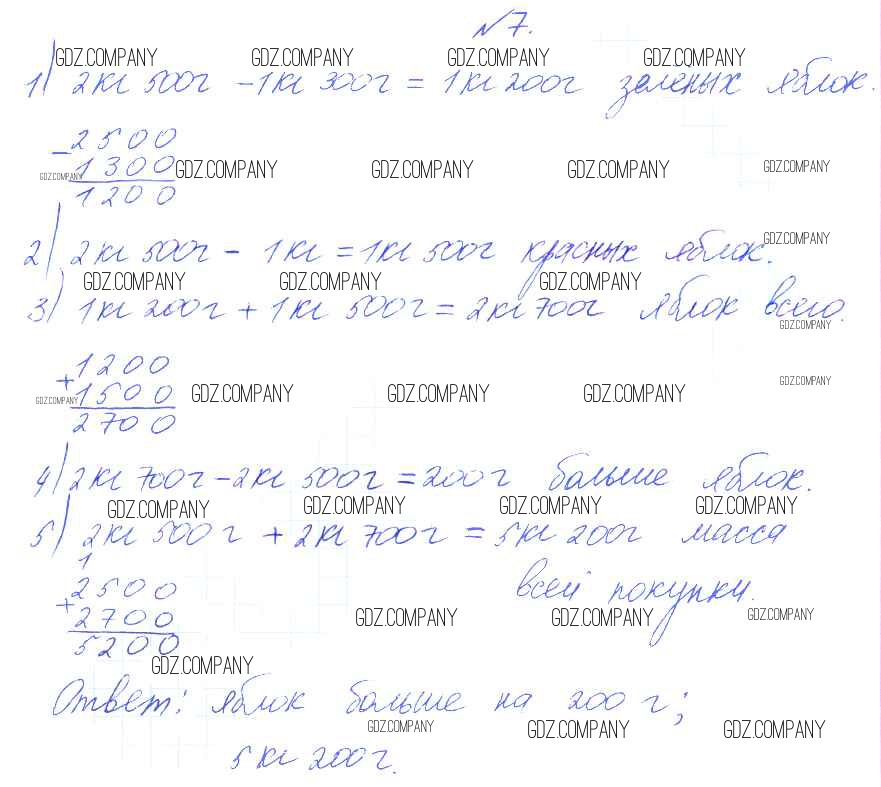 №7.
GDZ.COMPANY GDZ.COMPANY GDZ.COMPANY GDZ.COMPANY
1) 2кг 500г - 1кг 300г = 1кг 200г зеленых яблок.
- 2500
1300
GDZ.COMPANY GDZ.COMPANY GDZ.COMPANY GDZ.COMPANY GDZ.COMPANY
1200
GDZ.COMPANY
2) 2кг 500г - 1кг = 1кг 500г красных яблок.
GDZ.COMPANY GDZ.COMPANY GDZ.COMPANY
3) 1кг 200г + 1кг 500г = 2кг 700г яблок всего.
GDZ.COMPANY
1200
GDZ.COMPANY
+ 1500
GDZ.COMPANY GDZ.COMPANY GDZ.COMPANY GDZ.COMPANY
2700
4) 2кг 700г - 2кг 500г = 200г больше яблок.
GDZ.COMPANY GDZ.COMPANY GDZ.COMPANY GDZ.COMPANY
5) 2кг 500г + 2кг 700г = 5кг 200г масса
1
2500
всей покупки.
+ 2700
GDZ.COMPANY GDZ.COMPANY GDZ.COMPANY
5200
GDZ.COMPANY
Ответ: яблок больше на 200 г;
GDZ.COMPANY GDZ.COMPANY GDZ.COMPANY
5кг 200г.